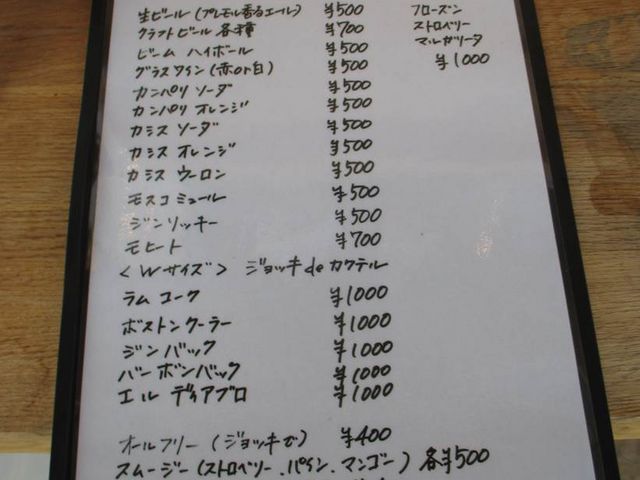 生ビール(プレモル香るエール) ¥500
クラフトビール各種 ¥700
ビーム ハイボール ¥500
グラスワイン(赤or白) ¥500
カンパリ ソーダ ¥500
カンパリ オレンジ ¥500
カシス ソーダ ¥500
カシス オレンジ ¥500
カシス ウーロン ¥500
モスコミュール ¥500
ジンリッキー ¥500
モヒート ¥700
<Wサイズ> ジョッキdeカクテル
ラム コーク ¥1000
ボストンクーラー ¥1000
ジンバック ¥1000
バーボンバック ¥1000
エル ディアブロ ¥1000
オールフリー(ジョッキで) ¥400
スムージー(ストロベリー、パイン、マンゴー) 各¥500
フローズン
ストロベリー
マルガリータ
¥1000